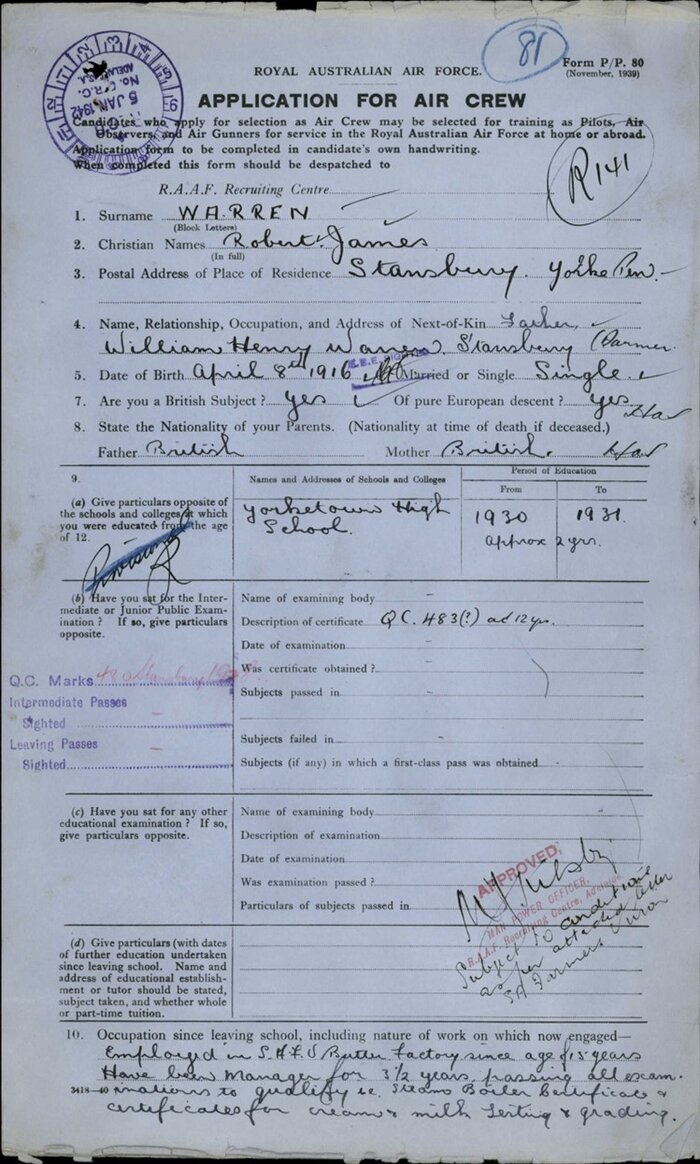 81
Form P/P. 80
(November, 1939)
No. 5 R.C.
ADELAIDE S.A.
5 JAN 1942
ROYAL AUSTRALIAN AIR FORCE.
APPLICATION FOR AIR CREW
Candidates who apply for selection as Air Crew may be selected for training as Pilots, Air
Observers, and Air Gunners for service in the Royal Australian Air Force at home or abroad.
Application form to be completed in candidate's own handwriting.
When completed this form should be despatched to
R.A.A.F. Recruiting Centre
R141
1. Surname WARREN
(Block Letters)
2. Christian Names Robert James
(In full)
3. Postal Address of Place of Residence Stansbury. Yorke Pen.
4. Name, Relationship, Occupation, and Address of Next-of-Kin Father,
William Henry Warren, Stansbury (Farmer
5. Date of Birth April 8th 1916 Married or Single Single.
7. Are you a British Subject? Yes Of pure European descent? Yes
8. State the Nationality of your Parents. (Nationality at time of death if deceased.)
Father British Mother British.
9.
(a) Give particulars opposite of
the schools and colleges at which
you were educated from the age
of 12.
Names and Addresses of Schools and Colleges
Period of Education
From To
Yorketown High
School.
1930 1931
approx 2 yrs.
(b) Have you sat for the Inter-
mediate or Junior Public Exam-
ination? If so, give particulars
opposite.
Name of examining body -
Description of certificate Q C. 483(?) at 12 yrs.
Date of examination
Was certificate obtained?
Subjects passed in
Subjects failed in
Subjects (if any) in which a first-class pass was obtained
Q.C. Marks Stansbury
Intermediate Passes
Sighted -
Leaving Passes
Sighted -
(c) Have you sat for any other
educational examination? If so,
give particulars opposite.
Name of examining body
Description of examination
Date of examination
Was examination passed?
Particulars of subjects passed in
APPROVED,
MAN POWER OFFICER,
R.A.A.F. Recruiting Centre, Adelaide
Subject to conditions
as per attached letter
SA Farmers Union
(d) Give particulars (with dates
of further education undertaken
since leaving school. Name and
address of educational establish-
ment or tutor should be stated,
subject taken, and whether whole
or part-time tuition.
10. Occupation since leaving school, including nature of work on which now engaged—
Employed in S.A.F.U Butter Factory since age of 15 years
Have been Manager for 3½ years, passing all exam-
3418—40 inations to qualify ie. Steam Boiler Certificate &
certificates for cream & milk testing & grading.